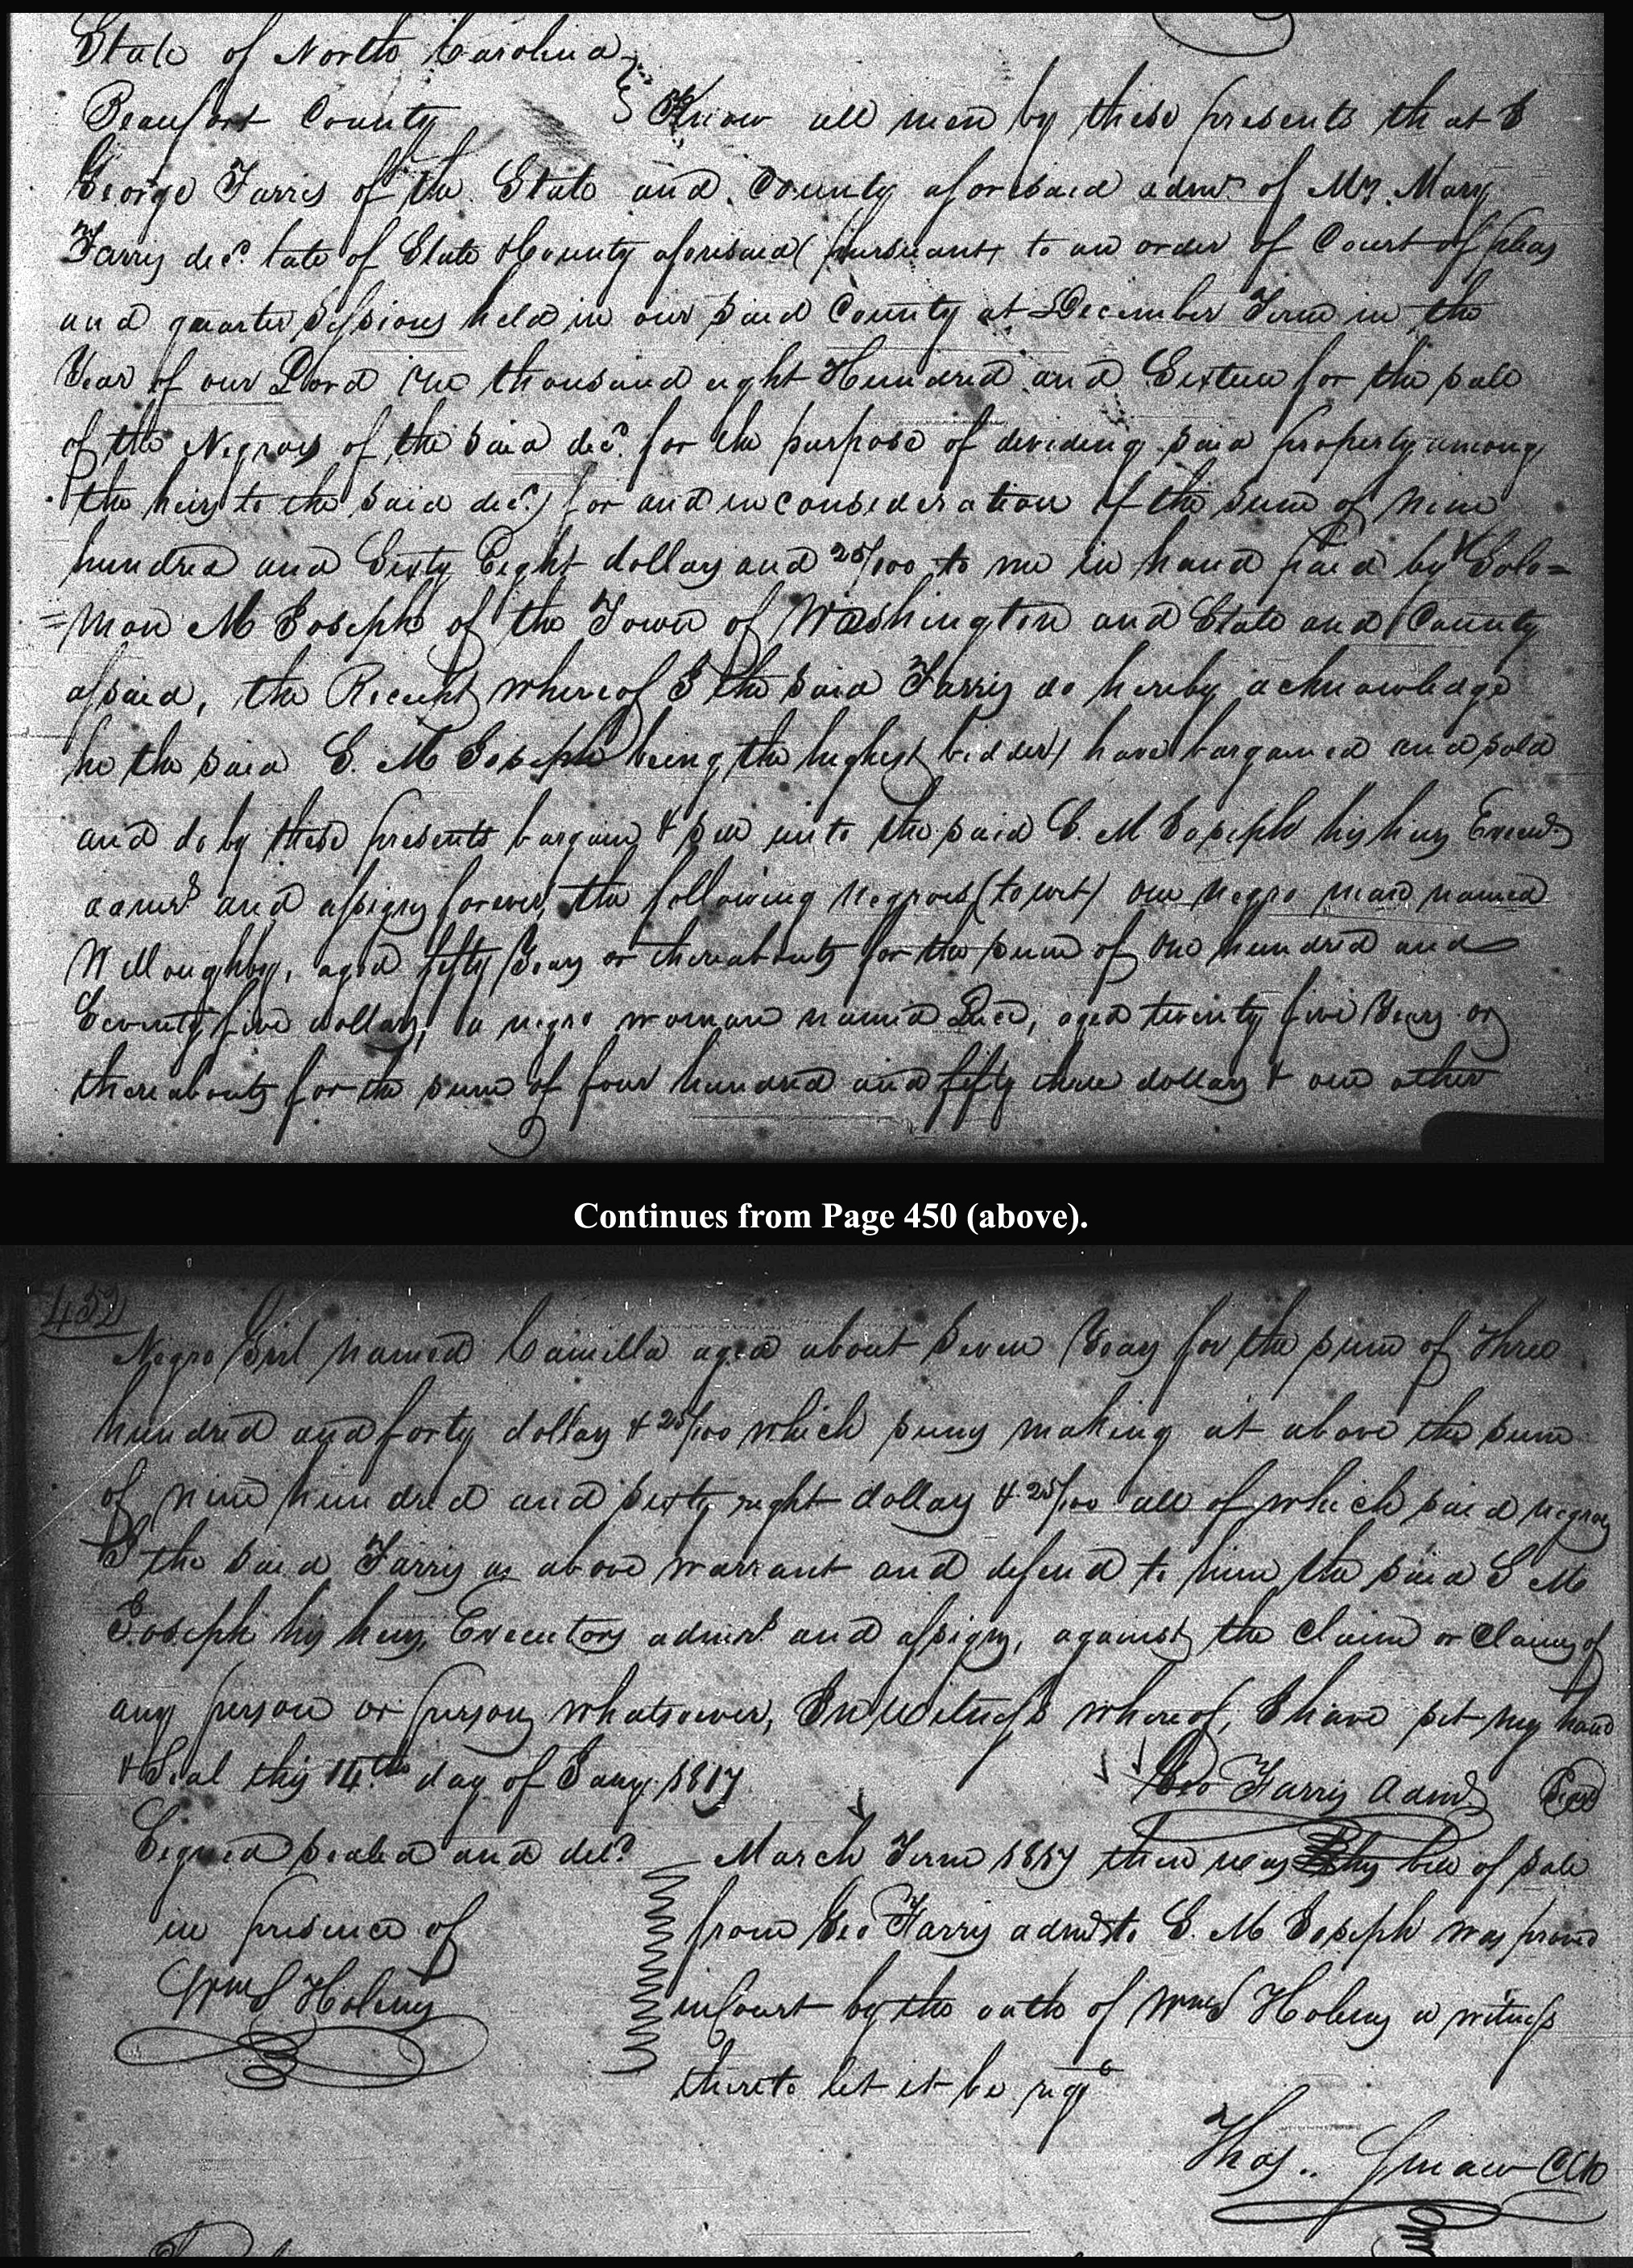 State of North Carolina
Beaufort County } Know all men by these presents that I
George Farris of the State and County aforesaid admr. of Mrs. Mary
Farris decd. late of State & County aforesaid (pursuant to an order of Court of pleas
and quarter Sessions held in our said County at December Term in the
Year of our Lord One thousand eight Hundred and Sixteen for the sale
of the Negroes of the said decd. for the purpose of dividing said property among
the heirs to the said decd.) for and in consideration of the sum of Nine
hundred and Sixty Eight dollars and 25/100 to me in hand paid by Solo=
=mon M Joseph of the Town of Washington and State and County
afsaid, the Receipt whereof I the said Farris do hereby acknowledge
he the said S. M Joseph being the highest bidder) have bargained and sold
and do by these presents bargain & sell unto the said S. M Joseph his heirs Execurs
admrs and assigns forever, the following negroes (to wit) one negro man named
Willoughby, aged fifty Years or thereabouts for the sum of One hundred and
Seventy five dollars, a negro woman named Luce, aged twenty five Years or
thereabouts for the sum of four hundred and fifty three dollars & one other
Continues from Page 450 (above).
452
Negro Girl named Camilla aged about Seven Years for the sum of Three
hundred and forty dollars & 25/100 which sums making as above the sum
of nine hundred and sixty eight dollars & 25/100 all of which said negroes
I the said Farris as above warrant and defend to him the said S M
Joseph his heirs, Executors admrs. and assigns, against the claim or claims of
any person or persons whatsoever, In Witness whereof, I have set my hand
& Seal this 14th day of Jany. 1817 Geo Farris Admr Seal
Signed sealed and deld. March Term 1817 then was this bill of sale
in presence of from Geo Farris admr to S. M Joseph was proved
Wm S Holmes in Court by the oath of Wm S Holmes a witness
thereto let it be regd
Thos.. Smaw CClk